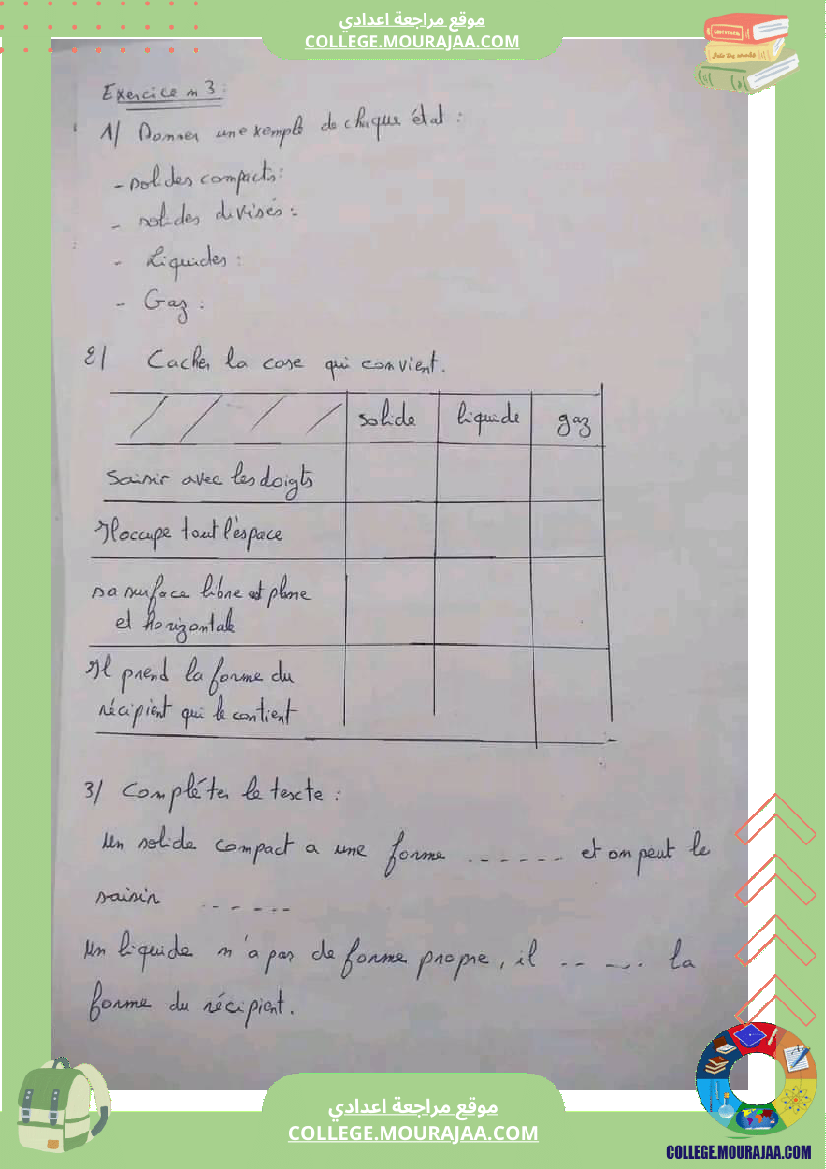 موقع مراجعة اعدادي
COLLEGE.MOURAJAA.COM
Exercice n 3 :
1/ Donner une exemple de chaque état :
- solides compacts :
- solides divisés :
- Liquides :
- Gaz :
2/ Cacher la case qui convient.
solide liquide gaz
Saisir avec les doigts
Il occupe tout l'espace
sa surface libre est plane
et horizontale
Il prend la forme du
récipient qui le contient
3/ Compléter le texte :
Un solide compact a une forme ------ et on peut le
saisir ------
Un liquide n'a pas de forme propre, il ----- la
forme du récipient.
موقع مراجعة اعدادي
COLLEGE.MOURAJAA.COM
COLLEGE.MOURAJAA.COM